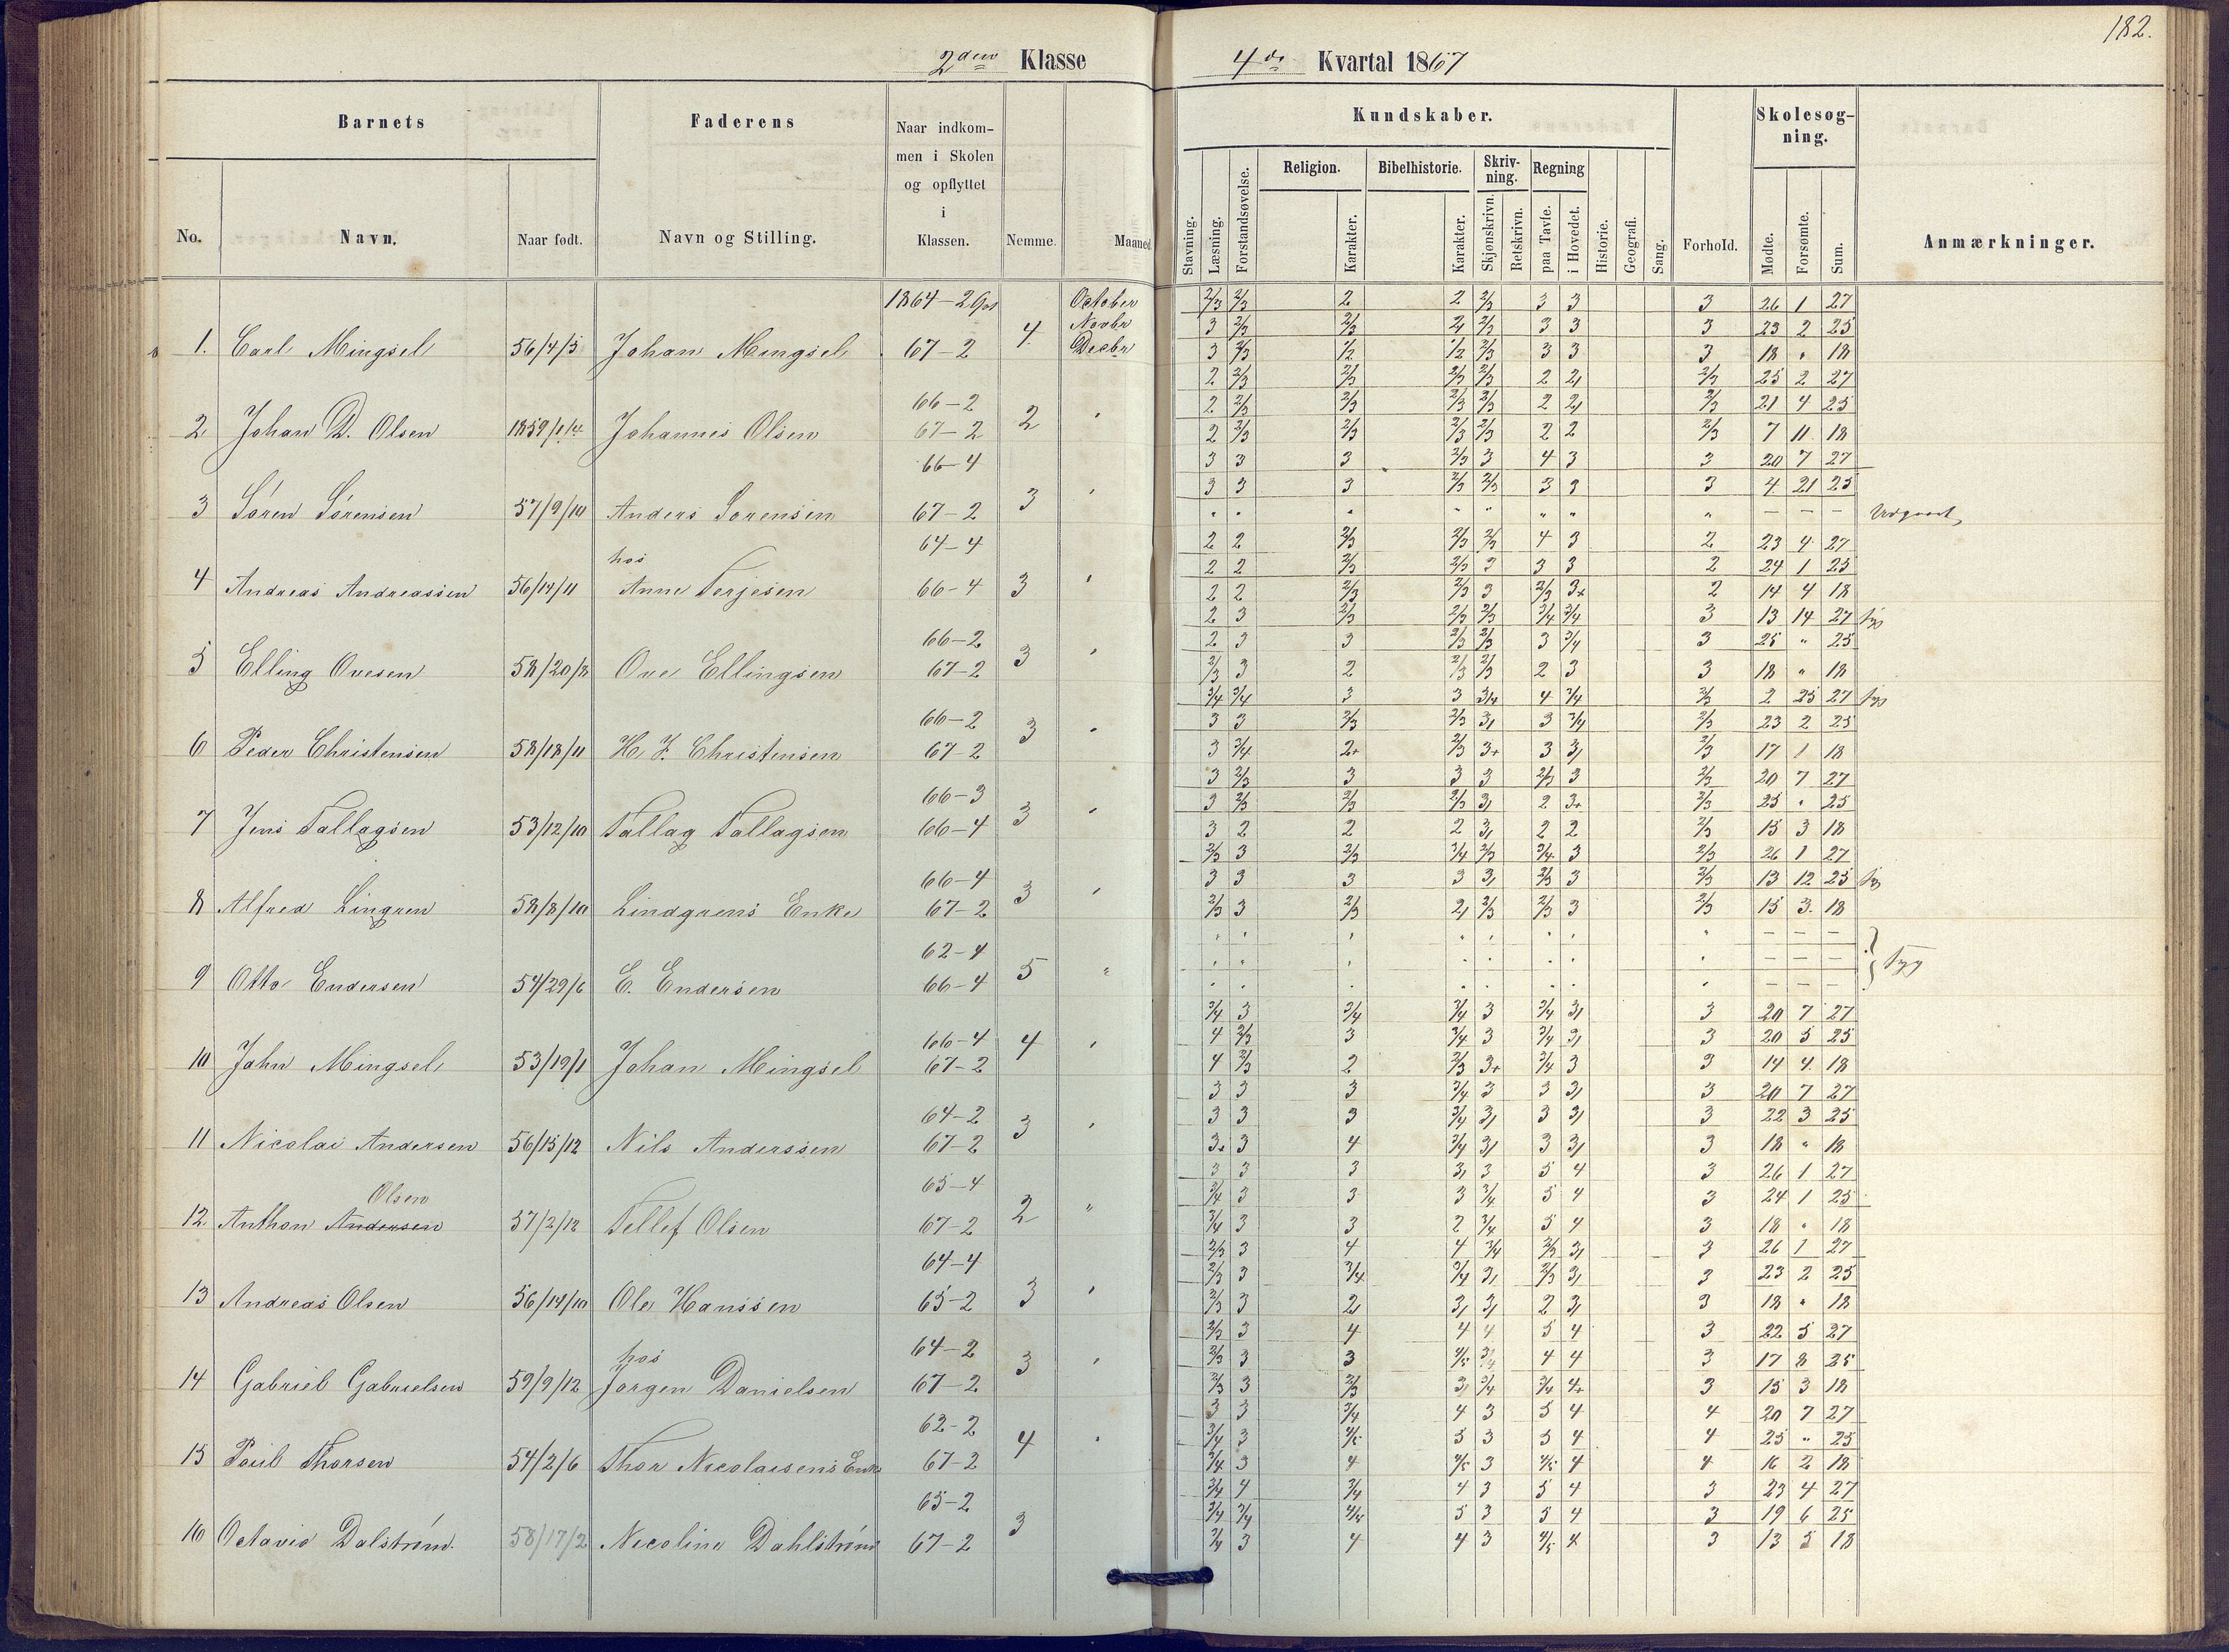 182.
2den Klasse 4de Kvartal 1867
Barnets Faderens Naar indkom- men i Skolen og opflyttet i Klassen. Nemme. Maaned Kundskaber. Forhold. Skolesøg- ning. Anmærkninger.
No. Navn. Naar født. Navn og Stilling.
Stavning. Læsning. Forstandsøvelse. Religion. Karakter. Bibelhistorie. Karakter. Skriv- ning. Skjønskrivn. Retskrivn. Regning paa Tavle. i Hovedet. Historie. Geografi. Sang. Mødte. Forsømte. Sum.
1864-2 October 2/3 2/3 2 2 2/3 3 3 3 26 1 27
Novbr 3 2/3 2/3 2, 2/3 3 3 3 23 2 25
1. Carl Mingsel 56/4/5 Johan Mingsel 67-2 4 Decbr 3 2/3 1/2 1/2 2/3 3 3 3 18 " 18
2 2/3 2/3 2/3 2/3 2 2, 2/3 25 2 27
66-2 2 2/3 2/3 2/3 2/3 2 2, 2/3 21 4 25
2 Johan D. Olsen 1859/1/4 Johannes Olsen 67-2 2 " 2 2/3 2/3 2/3 2/3 2 2 2/3 7 11 18
66-4 3 3 3 2/3 3 4 3 3 20 7 27
3 3 3 2/3 2/3 3 3 3 4 21 25
3 Søren Sørensen 57/9/10 Anders Sørensen 67-2 3 " " " " " " " " " - - -
64-4 2 2 2/3 2/3 2/3 4 3 2 23 4 27
hos 2 2 2/3 2/3 3 3 3 2 24 1 25
4 Andreas Andreassen 56/14/11 Anne Terjesen 66-4 3 " 2 2 2/3 2/3 3 2/3 3+ 2 14 4 18
2 3 2/3 2/3 2/3 3/4 3/4 3 13 14 27 syg
66-2 2 3 3 2/3 2/3 3 3/4 3 25 " 25
5 Elling Ovesen 58/20/8 Ove Ellingsen 67-2 3 " 2/3 3 2 2/3 2/3 2 3 3 18 " 18
3/4 3/4 3 3 3/4 4 3/4 2/3 2 25 27 syg
66-2 3 3 2/3 2/3 3, 3 3/4 2/3 23 2 25
6 Peder Christensen 58/18/11 H. J. Christensen 67-2 3 " 3 3/4 2+ 2/3 3+ 3 3, 2/3 17 1 18
3 2/3 3 3 3 2/3 3 2/3 20 7 27
66-3 3 2/3 2/3 2/3 3, 2 3+ 2/3 25 " 25
7 Jens Tallagsen 53/12/10 Tallag Tallagsen 66-4 3 " 3 2 2 2 3, 2 2 2/3 15 3 18
2/3 3 2/3 3/4 2/3 3/4 3 2/3 26 1 27
66-4 3 3 3 3 3, 2/3 3 2/3 13 12 25 syg
8 Alfred Lingren 58/8/10 Lindgrens Enke 67-2 3 " 2/3 3 2/3 2, 2/3 2/3 3 2/3 15 3 18
62-4 " " " " " " " " - - -
9 Otto Endersen 54/29/6 E. Endersen 66-4 5 " " " " " " " " " - - - syg
3/4 3 3/4 3/4 3 3/4 3, 3 20 7 27
66-4 4 2/3 3 3/4 3 3/4 3, 3 20 5 25
10 John Mingsel 53/19/1 Johan Mingsel 67-2 4 " 4 2/3 2 2/3 3+ 3/4 3 3 14 4 18
3 3 3 3/4 3 3 3, 3 20 7 27
64-2 3 3 3 3/4 3, 3 3, 3 22 3 25
11 Nicolai Andersen 56/15/12 Nils Anderssen 67-2 3 " 3+ 3 4 3/4 3, 3 3, 3 18 " 18
3 3 3 3, 3 5 4 3 26 1 27
Olsen 65-4 3/4 3 3 3 3/4 5 4 3 24 1 25
12. Anthon Andersen 57/2/12 Tellef Olsen 67-2 2 " 3/4 3 3 2 3/4 5 4 3 18 " 18
64-4 2/3 3 4 4 3/4 2/3 3, 3 26 1 27
2/3 3 3/4 3/4 3, 2/3 3, 3 23 2 25
13 Andreas Olsen 56/14/10 Ole Hanssen 65-2 3 " 2/3 3 2, 3, 3, 2 3, 3 18 " 18
2/3 3 4 4 4 5 4 3 22 5 27
hos 64-2 2/3 3 3 4/5 3/4 4 4 3 17 8 25
14 Gabriel Gabrielsen 59/9/12 Jørgen Danielsen 67-2 3 " 2/3 3 2/3 3, 3/4 3/4 4+ 3 15 3 18
62-2 3 3 3/4 4 3 5 4 4 20 7 27
3/4 3 4/5 5 3 5 4 4 25 " 25
15 Paul Thorsen 54/2/6 Thor Nicolaisens Enke 67-2 4 " 3/4 3 4 4/5 3 4/5 4 4 16 2 18
65-2 3/4 4 3/4 4 3 5 4 3 23 4 27
3/4 3/4 4/5 5 3 5 4 3 19 6 25
16 Octavio Dalstrøm. 58/17/2 Nicoline Dahlstrøm 67-2 3 3/4 3 4 4 3 4/5 4 3 13 5 18